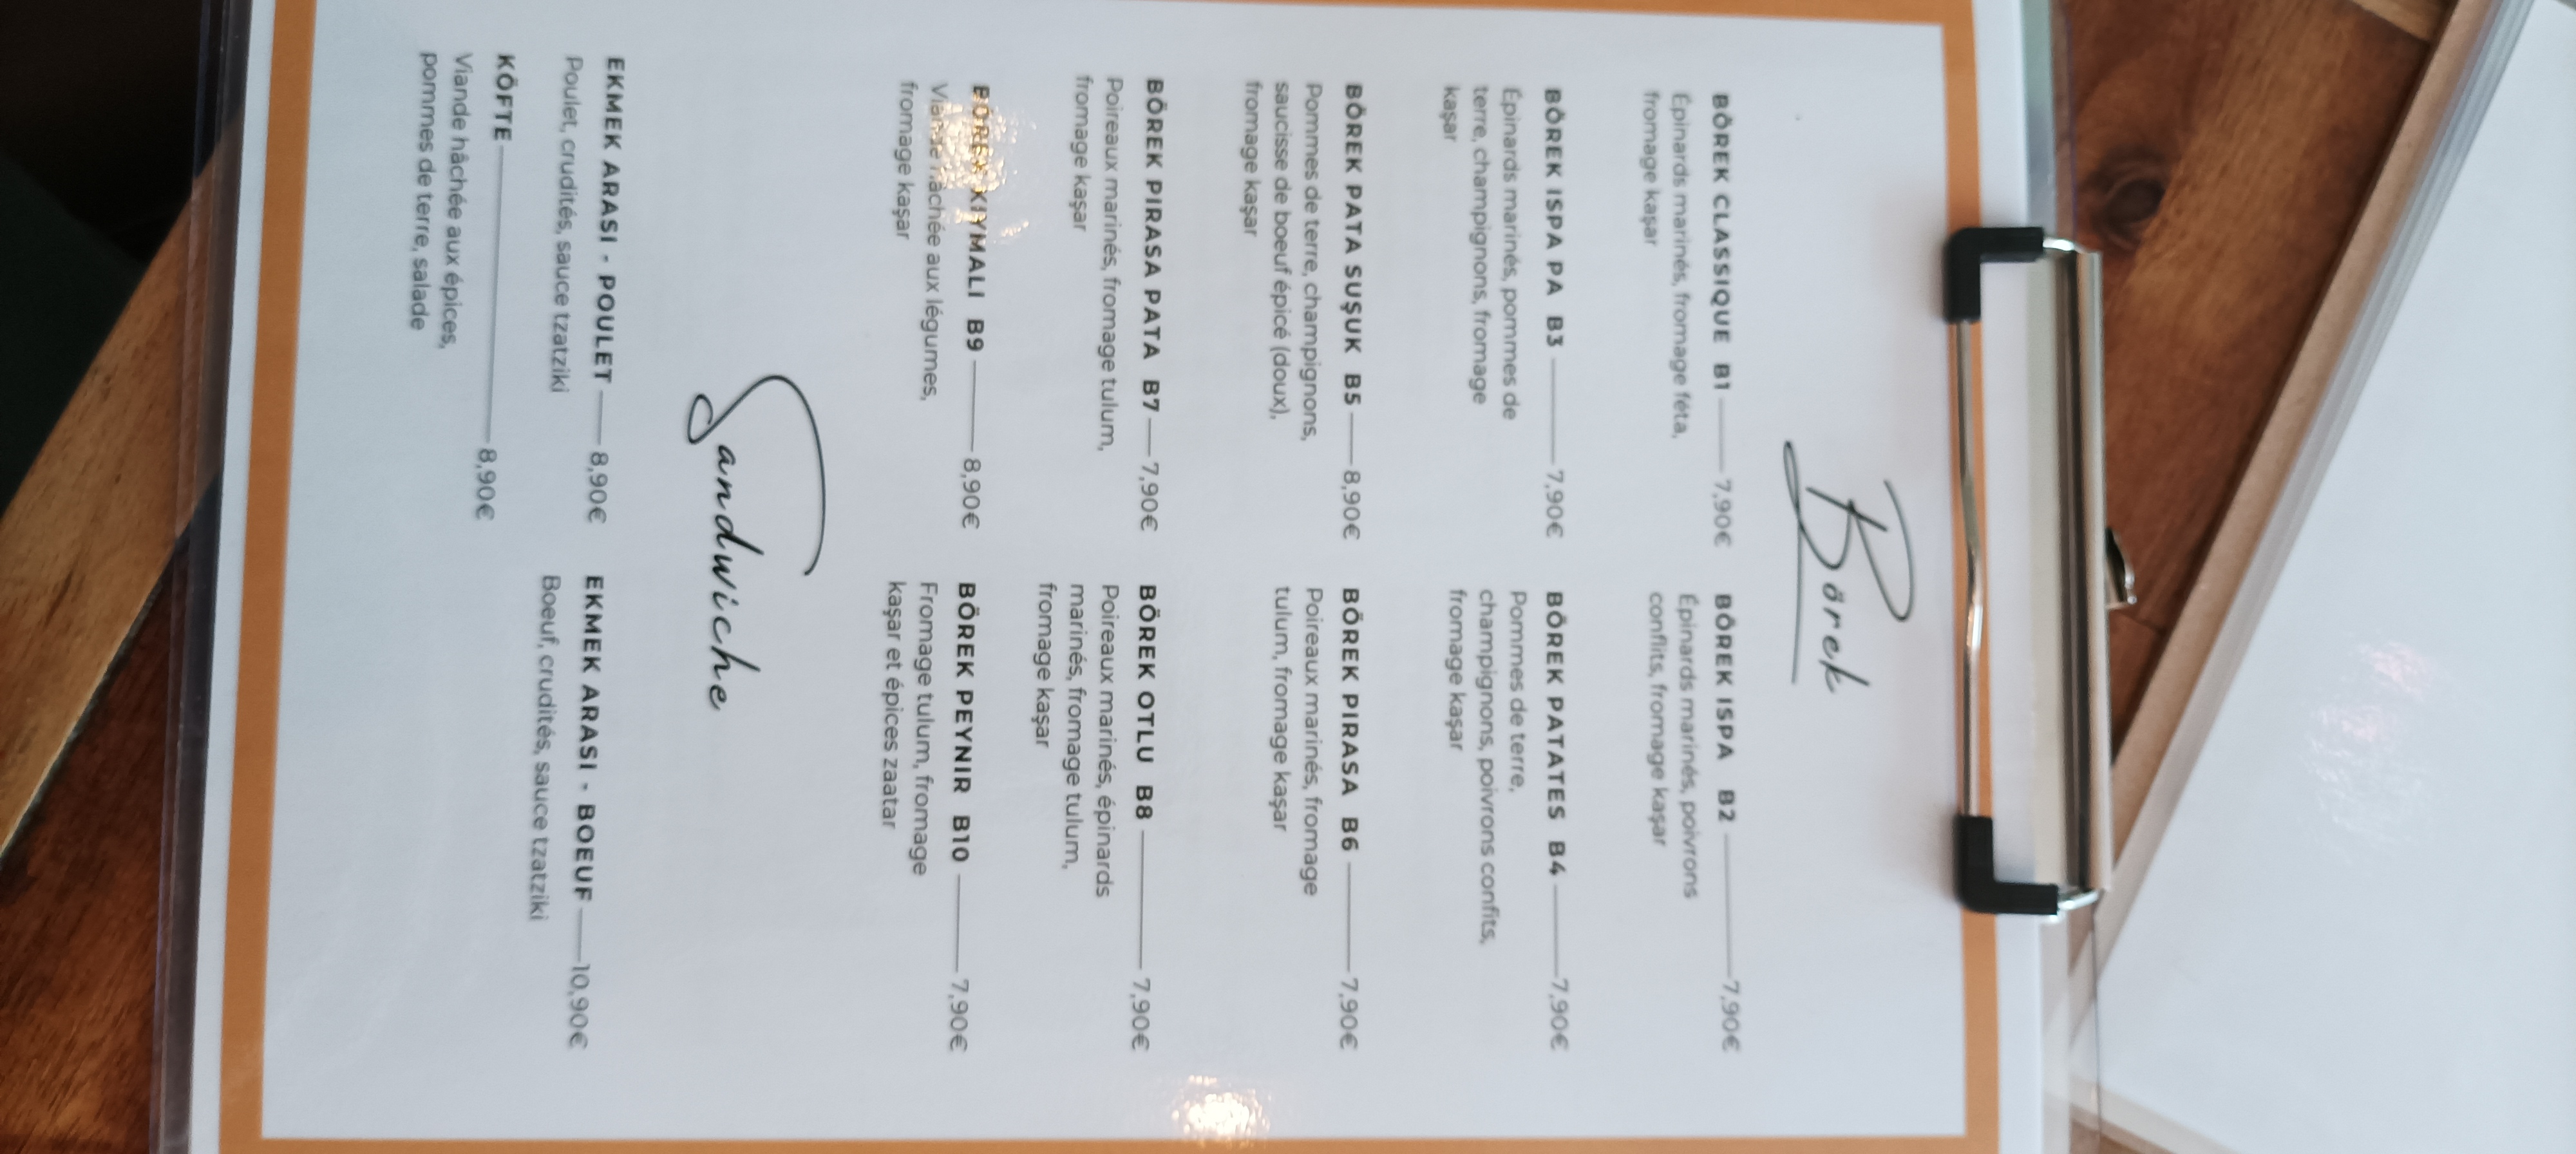 Börek
BÖREK CLASSIQUE B1 7,90€
Épinards marinés, fromage féta,
fromage kaşar
BÖREK ISPA B2 7,90€
Épinards marinés, poivrons
conflits, fromage kaşar
BÖREK ISPA PA B3 7,90€
Épinards marinés, pommes de
terre, champignons, fromage
kaşar
BÖREK PATATES B4 7,90€
Pommes de terre,
champignons, poivrons confits,
fromage kaşar
BÖREK PATA SUŞUK B5 8,90€
Pommes de terre, champignons,
saucisse de boeuf épicé (doux),
fromage kaşar
BÖREK PIRASA B6 7,90€
Poireaux marinés, fromage
tulum, fromage kaşar
BÖREK PIRASA PATA B7 7,90€
Poireaux marinés, fromage tulum,
fromage kaşar
BÖREK OTLU B8 7,90€
Poireaux marinés, épinards
marinés, fromage tulum,
fromage kaşar
BÖREK KIYMALI B9 8,90€
Viande hâchée aux légumes,
fromage kaşar
BÖREK PEYNIR B10 7,90€
Fromage tulum, fromage
kaşar et épices zaatar
Sandwiche
EKMEK ARASI - POULET 8,90€
Poulet, crudités, sauce tzatziki
EKMEK ARASI - BOEUF 10,90€
Boeuf, crudités, sauce tzatziki
KÖFTE 8,90€
Viande hâchée aux épices,
pommes de terre, salade